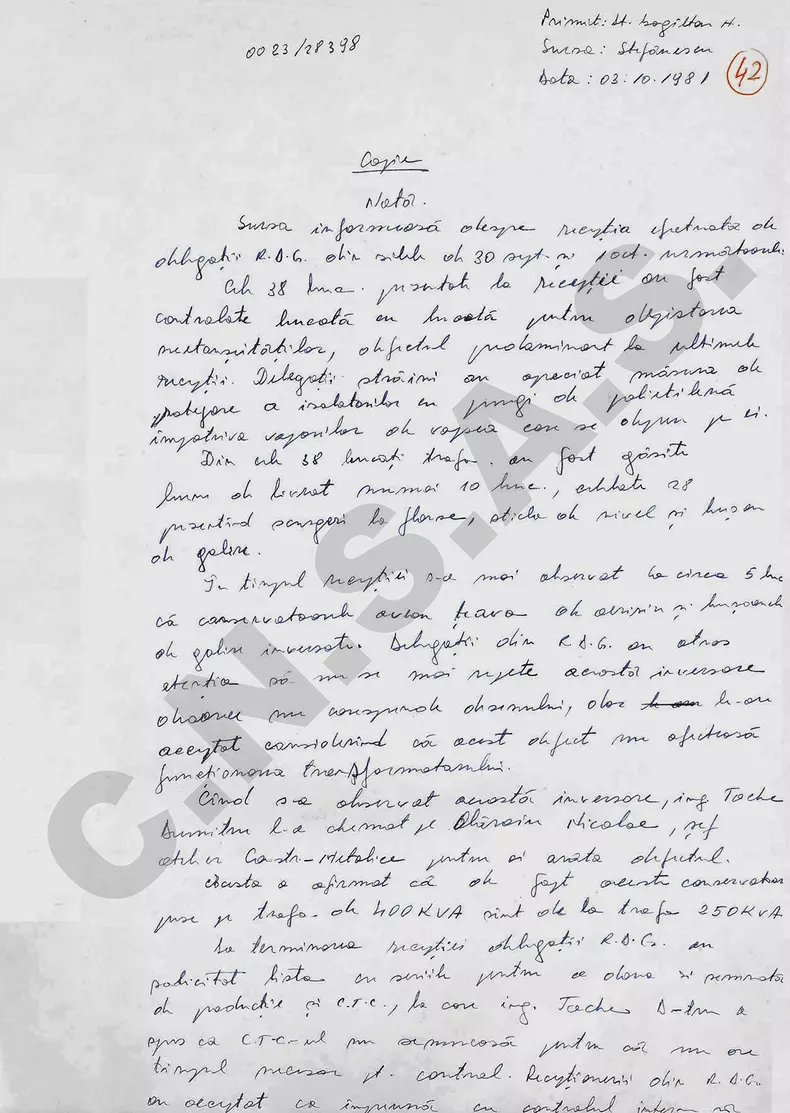 Primit: Lt.
0023/28398
Sursa: Ștefănescu
Data: 03.10.1981
42
Copie
Notă.
Sursa informează despre recepția efectuată de
delegații R.D.G. din zilele de 30 sept. și 1 oct. următoarele:
Cele 38 buc. prezentate la recepție au fost
controlate bucată cu bucată pentru depistarea
neetanșeităților, defectul predominant la ultimele
recepții. Delegații străini au apreciat măsura de
protejare a izolatorilor cu pungi de polietilenă
împotriva vaporilor de vopsea care se depun pe ei.
Din cele 38 bucăți trafo. au fost găsite
bune de livrat numai 10 buc., celelalte 28
prezentînd scurgeri la flanșe, sticla de nivel și bușon
de golire.
În timpul recepției s-a mai observat la circa 5 buc
că conservatoarele aveau țeava de aerisire și bușoanele
de golire inversate. Delegații din R.D.G. au atras
atenția să nu se mai repete această inversare
deoarece nu corespunde desenului, dar le-au
acceptat considerînd că acest defect nu afectează
funcționarea transformatorului.
Cînd s-a observat această inversare, ing. Tache
Dumitru l-a chemat pe Nicolae, șef
atelier Constr-Metalice pentru ai arăta defectul.
Acesta a afirmat că de fapt aceste conservatoare
puse pe trafo. de 400KVA sînt de la trafo 250KVA
La terminarea recepției delegații R.D.G. au
solicitat lista cu seriile pentru ca să semnată
de producție și C.T.C., la care ing. Tache D-tru a
spus că C.T.C-ul nu semnează pentru că nu are
timpul necesar pt. control. Recepționerii din R.D.G.
au acceptat ca împreună cu controlul intern să
C.N.S.A.S.